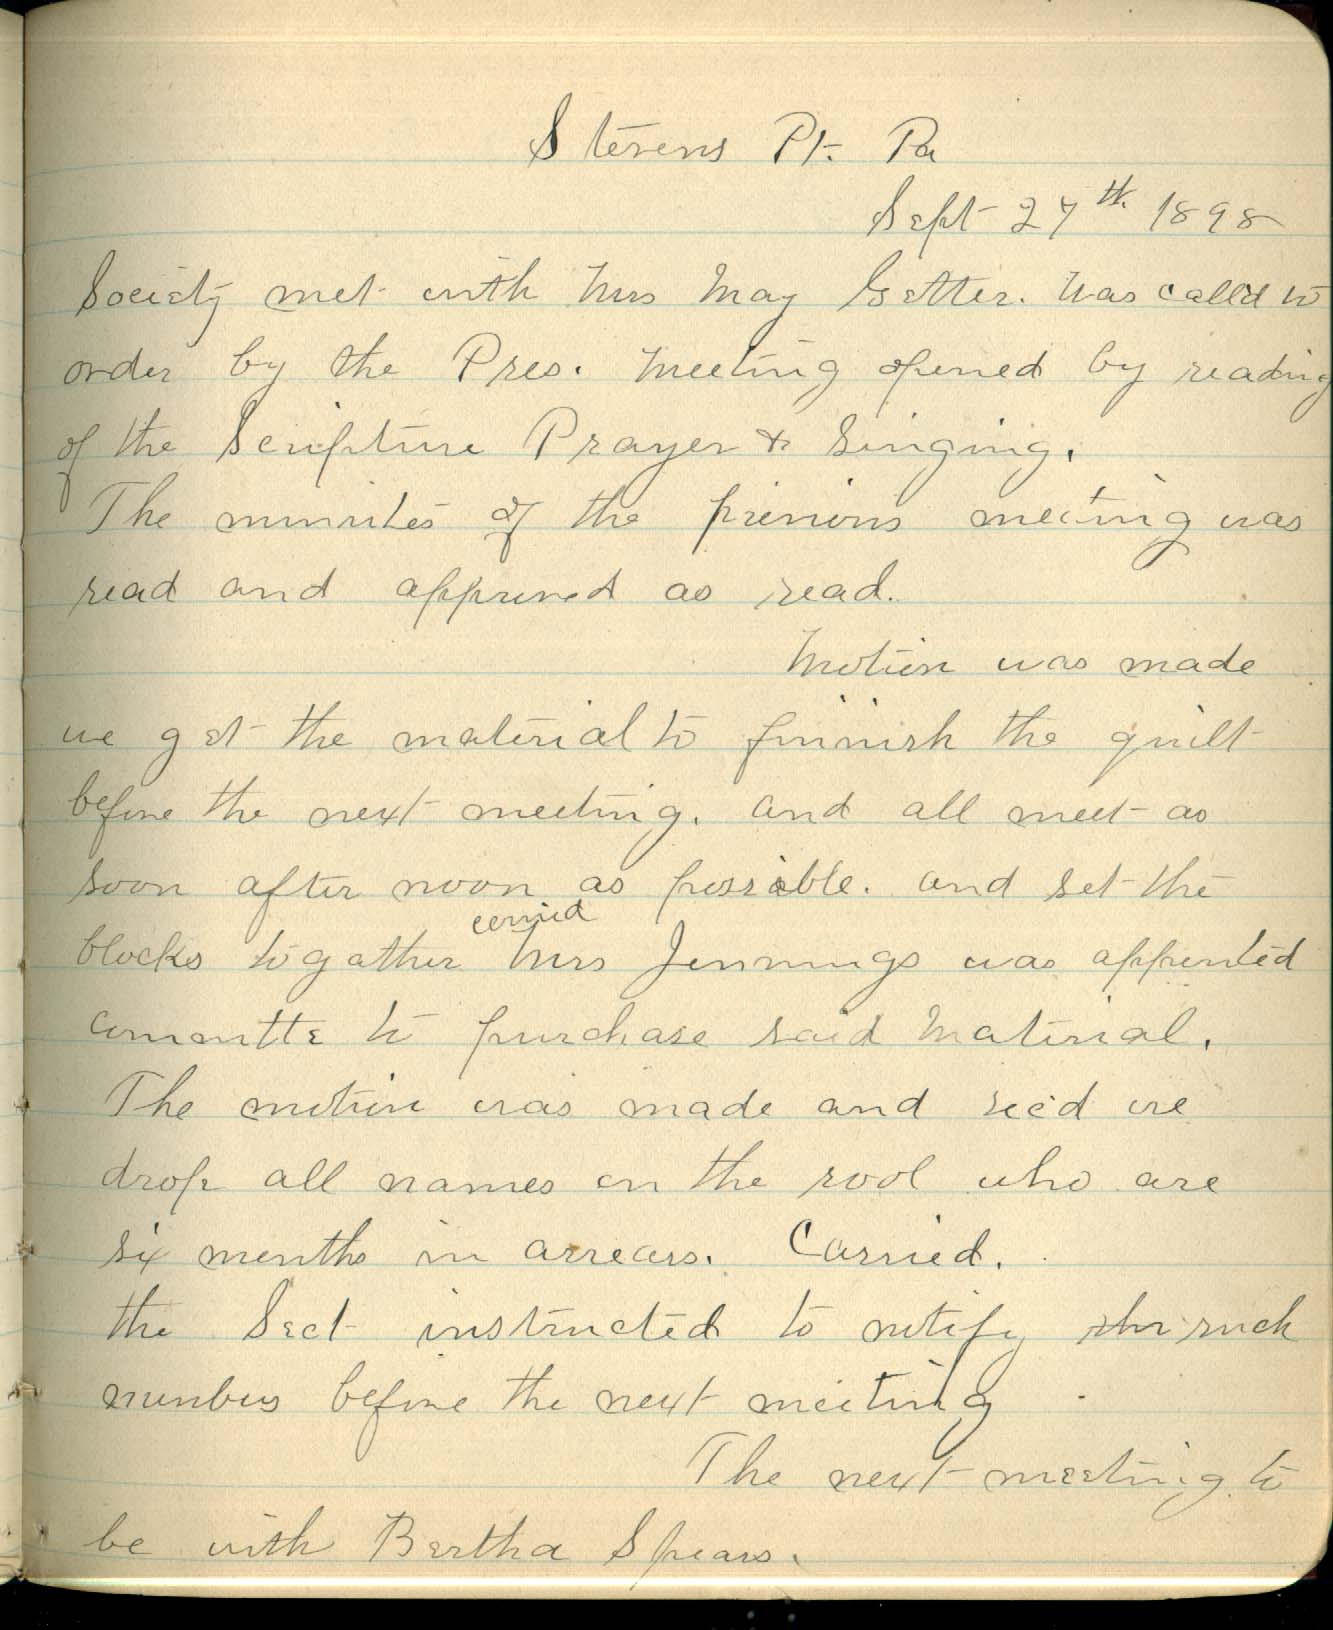 Stevens Pt. Pa
Sept 27th 1898
Society met with Mrs May Getter. Was called to
order by the Pres. Meeting opened by reading
of the Scripture Prayer & Singing.
The minutes of the previous meeting was
read and approved as read.
Motion was made
we get the material to finnish the quilt
before the next meeting. and all meet as
soon after noon as possible. and set the
carried
blocks togather Mrs Jennings was appointed
committe to purchase said Material.
The motion was made and sec'd we
drop all names on the rool who are
six months in arrears. Carried.
the Sect instructed to notify such
members before the next meeting
The next meeting to
be with Bertha Spears.